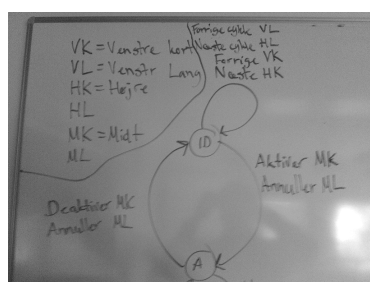 VK = Venstre kort
VL = Venstr Lang
HK = Højre
HL
MK = Midt
ML
Forrige cykle VL
Næste cykle HL
Forrige VK
Næste HK
ID
Aktiver MK
Annuller ML
Deaktiver MK
Annuller ML
A